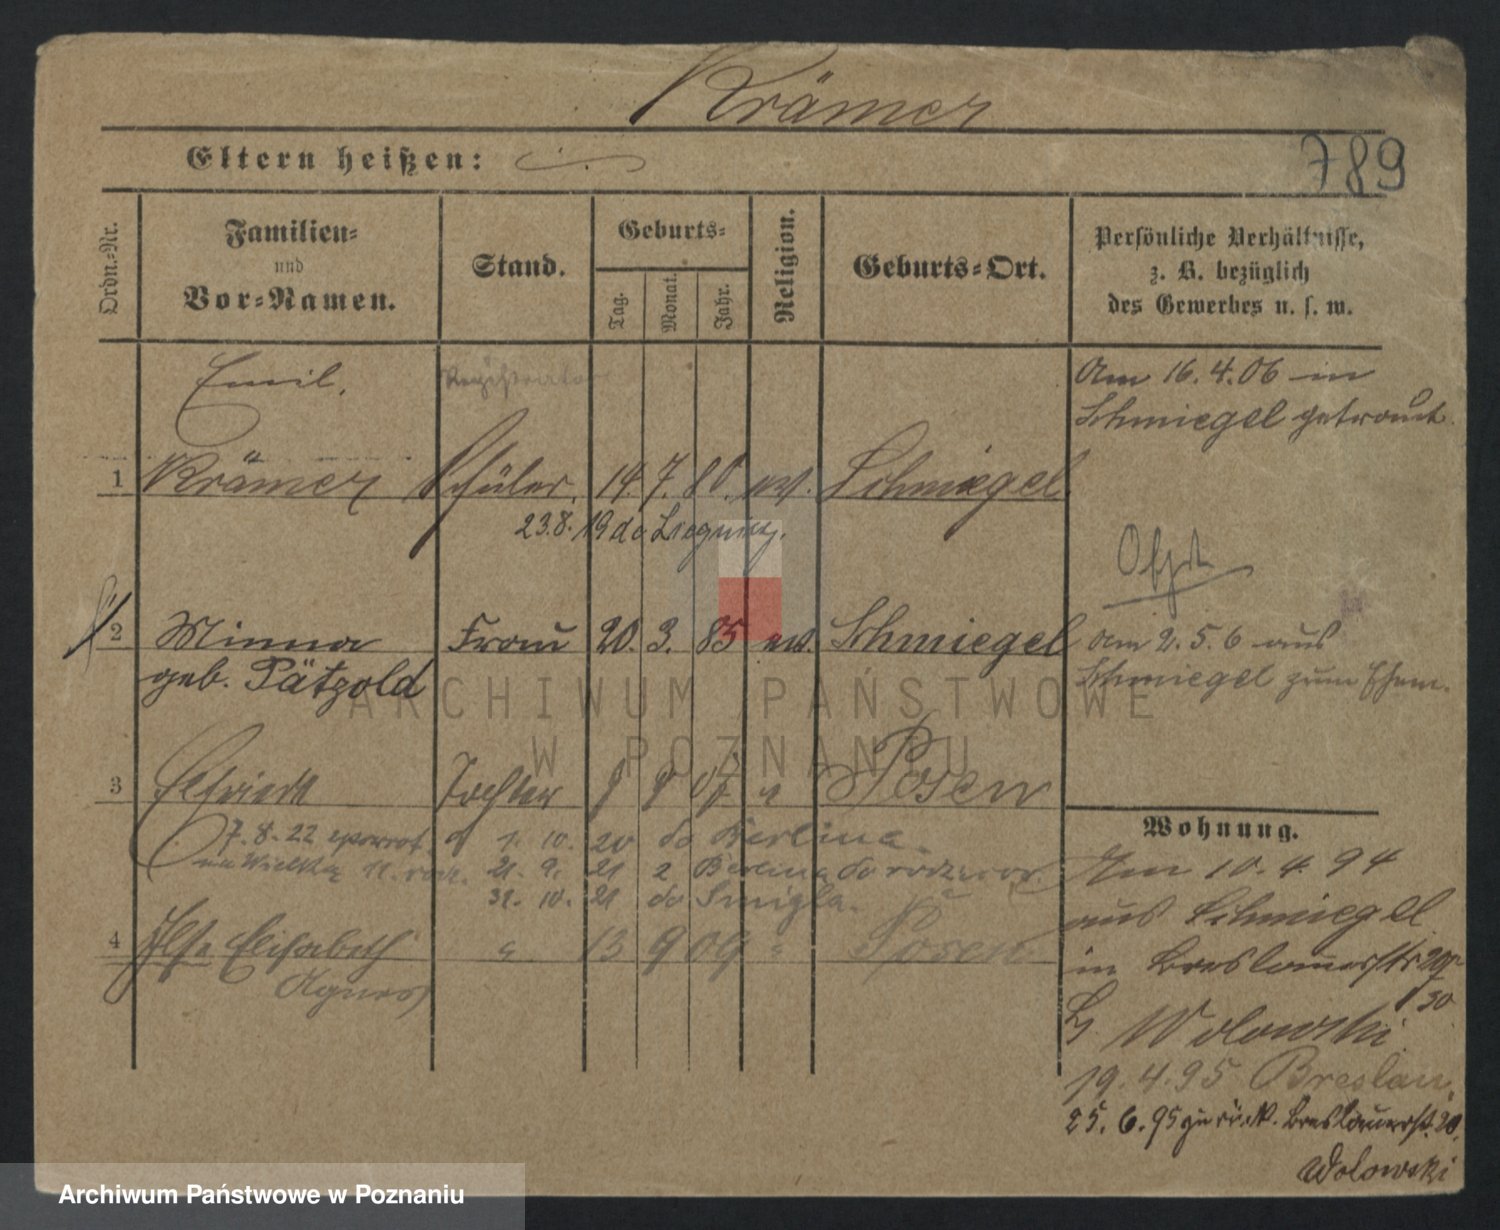 Krämer
Eltern heißen:
789
Ordn.-Nr.
Familien-
und
Vor-Namen.
Stand.
Geburts-
Tag.
Monat.
Jahr.
Religion.
Geburts-Ort.
Persönliche Verhältnisse,
z. B. bezüglich
des Gewerbes u. s. w.
Emil,
Registrator
Am 16.4.06 in
Schmiegel getraut.
1 Krämer Schüler. 14. 7. 80. ev. Schmiegel
23.8.19 do Liegnitz.
2 Minna Frau 20. 3. 85 ev. Schmiegel
geb. Pätzold
am 2.5.6 aus
Schmiegel zum Ehem.
3 Elfriede Tochter 07 Posen
7.8.22 1. 10. 20 do Berlina.
21. 9. 21 z Berlina do
31. 10. 21 do Smigla.
4 Ilse Elisabeth 13 9 09 Posen
Agnes
Wohnung.
Am 10.4.94
aus Schmiegel
in Breslauerstr 20
b. Wolowski
19.4.95 Breslau.
25.6.95 zurück. Breslauerst. 20.
Wolowski
ARCHIWUM PAŃSTWOWE
W POZNANIU
Archiwum Państwowe w Poznaniu